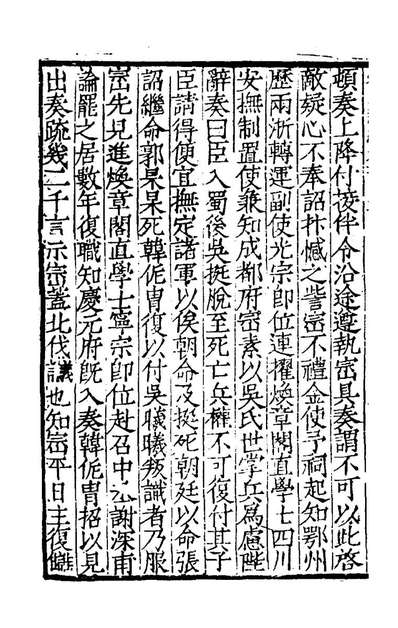 頓奏上降付接伴令沿途遵執崈具奏謂不可以此啓
敵疑心不奉詔抃憾之訾崈不禮金使予祠起知鄂州
歷兩浙轉運副使光宗卽位連擢煥章閣直學士四川
安撫制置使兼知成都府崈素以吳氏世掌兵爲慮陛
辭奏曰臣入蜀後吳挺脫至死亡兵權不可復付其子
臣請得便宜撫定諸軍以俟朝命及挺死朝廷以命張
詔繼命郭杲杲死韓侂冑復以付吳曦曦叛識者乃服
崈先見進煥章閣直學士寧宗卽位赴召中丞謝深甫
論罷之居數年復職知慶元府旣入奏韓侂冑招以見
出奏疏幾二千言示崈蓋北伐議也知崈平日主復讎